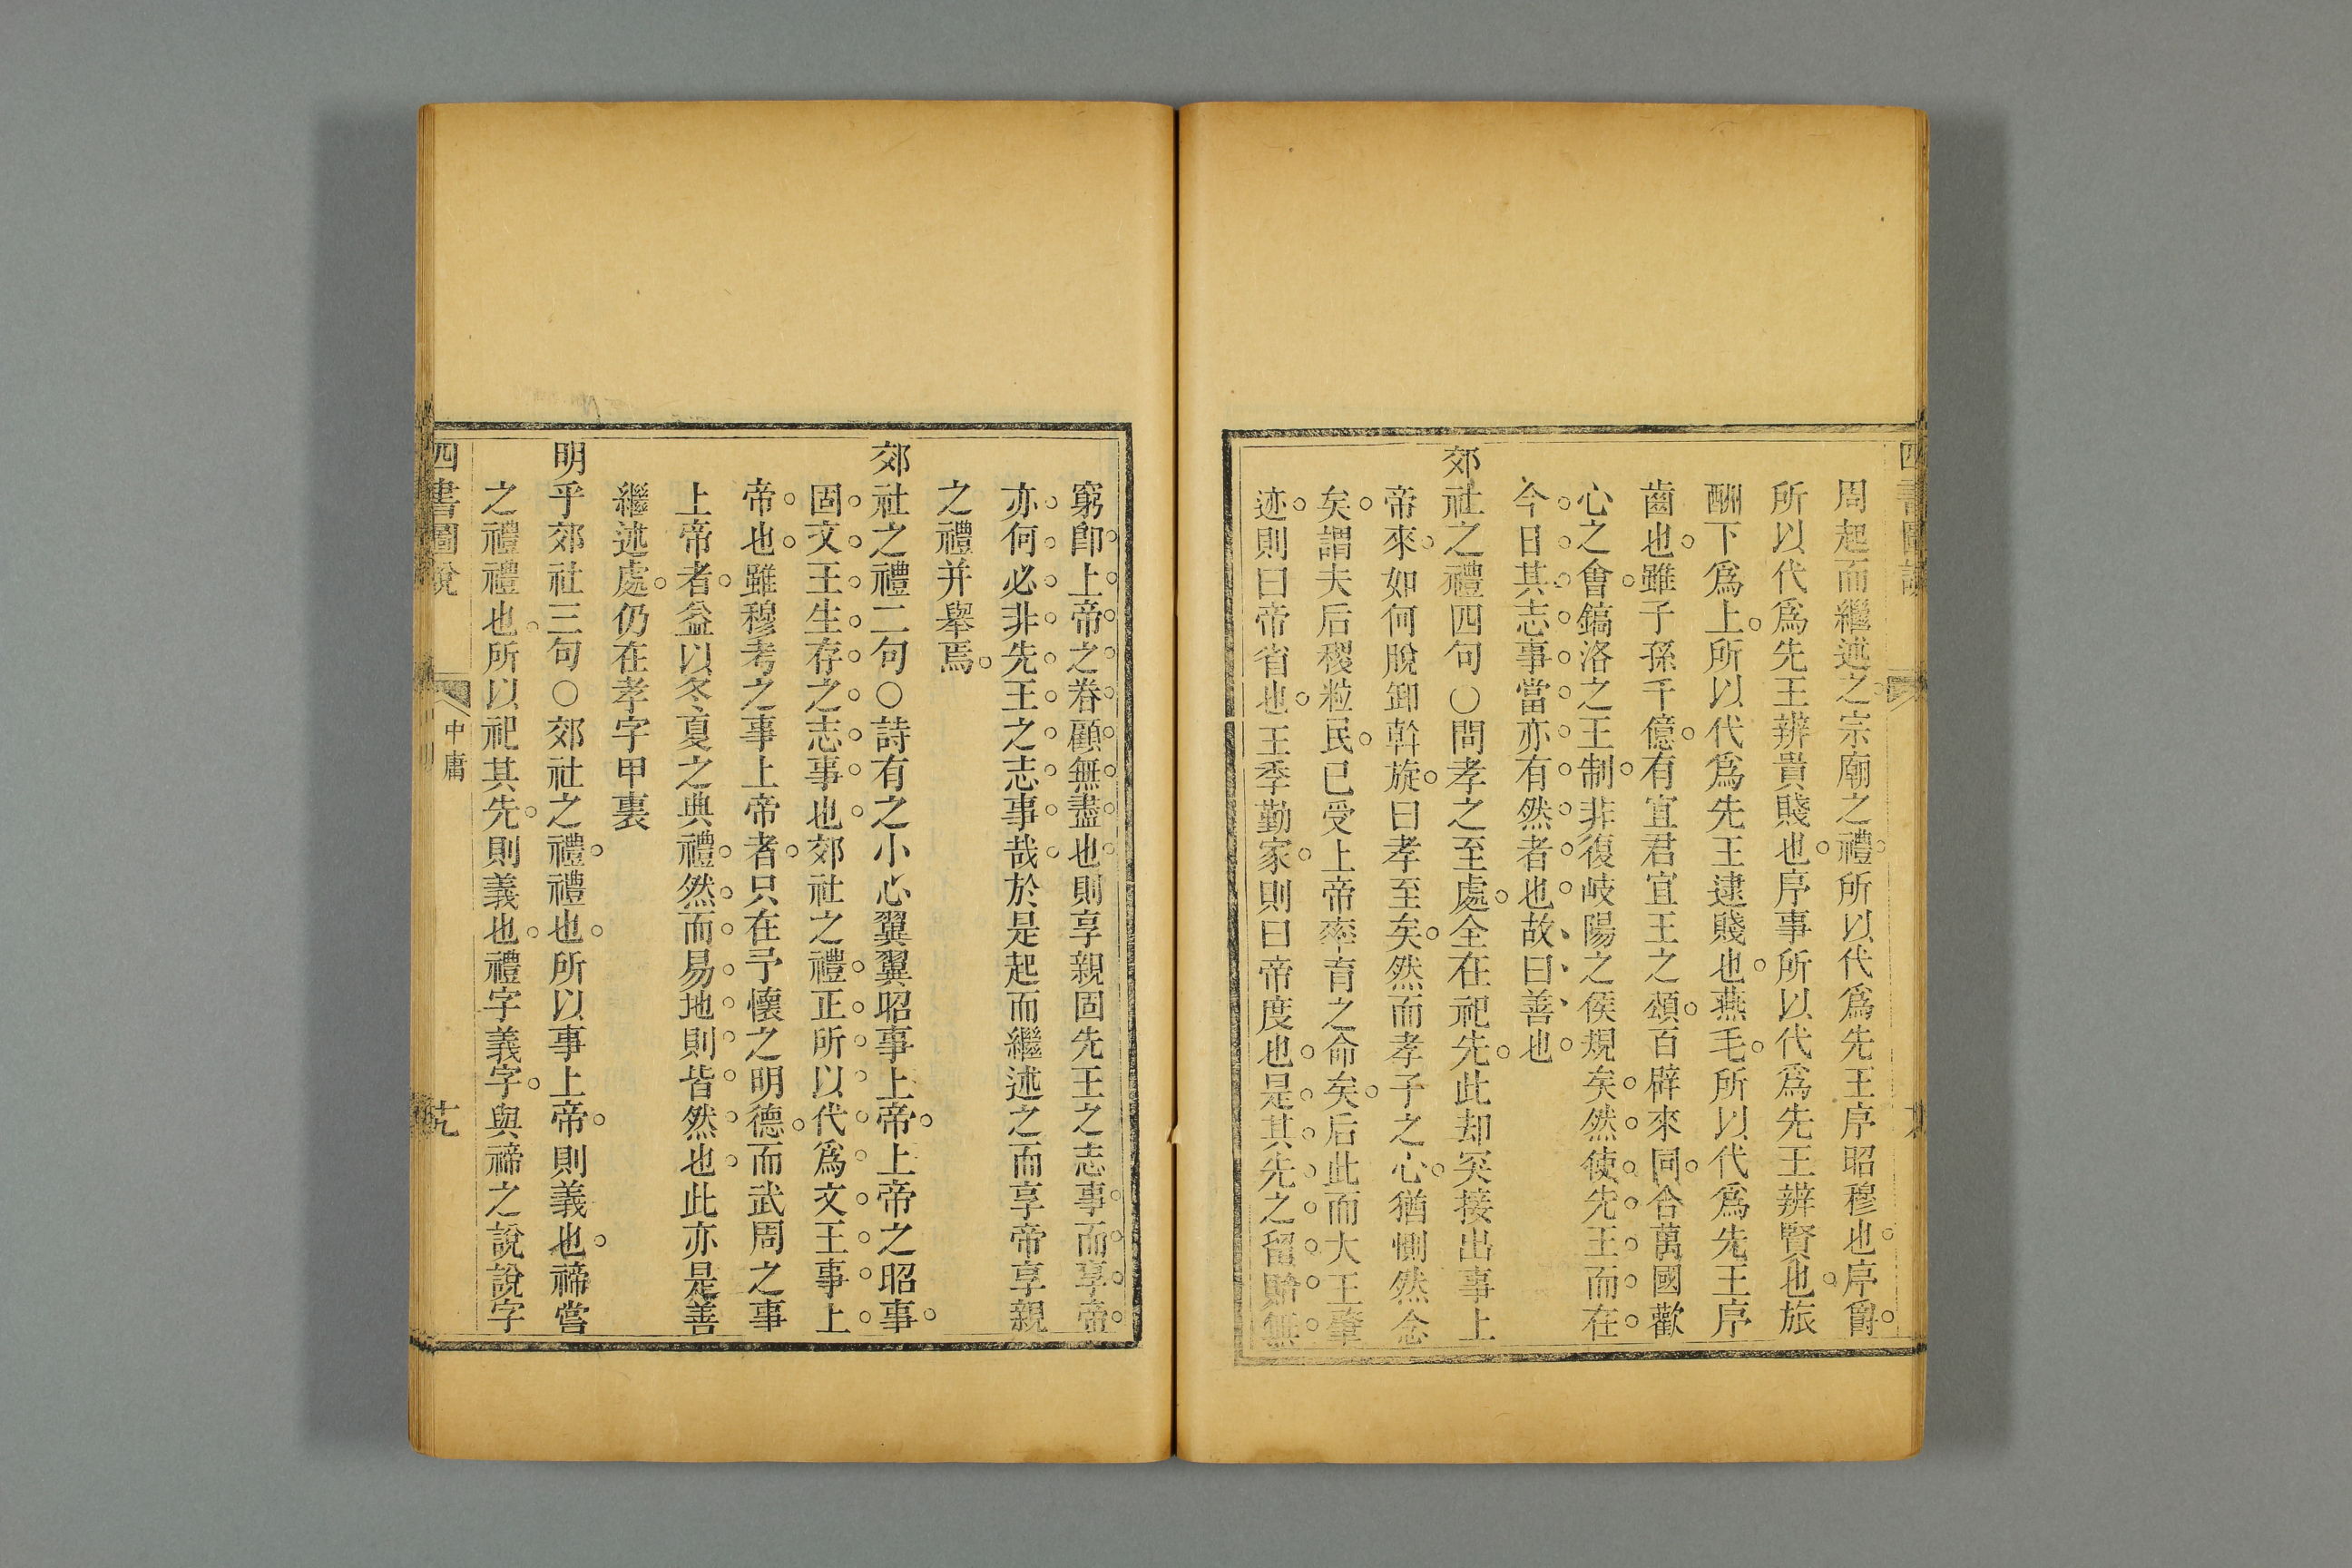 周起而繼述之宗廟之禮所以代爲先王序昭穆也序爵
所以代爲先王辨貴賤也序事所以代爲先王辨賢也旅
酬下爲上所以代爲先王逮賤也燕毛所以代爲先王序
齒也雖子孫千億有宜君宜王之頌百辟來同合萬國歡
心之會鎬洛之王制非復岐陽之侯規矣然使先王而在
今日其志事當亦有然者也故曰善也
郊社之禮四句○問孝之至處全在祀先此却突接出事上
帝來如何脫卸斡旋曰孝至矣然而孝子之心猶惻然念
矣謂夫后稷粒民已受上帝率育之命矣后此而大王肇
迹則曰帝省也王季勤家則曰帝度也是其先之留貽無
窮卽上帝之眷顧無盡也則享親固先王之志事而享帝
亦何必非先王之志事哉於是起而繼述之而享帝享親
之禮并舉焉
郊社之禮二句○詩有之小心翼翼昭事上帝上帝之昭事
固文王生存之志事也郊社之禮正所以代爲文王事上
帝也雖穆考之事上帝者只在予懷之明德而武周之事
上帝者益以冬夏之典禮然而易地則皆然也此亦是善
繼述處仍在孝字甲裏
明乎郊社三句○郊社之禮禮也所以事上帝則義也禘嘗
之禮禮也所以祀其先則義也禮字義字與禘之說說字
四書圖說
中庸